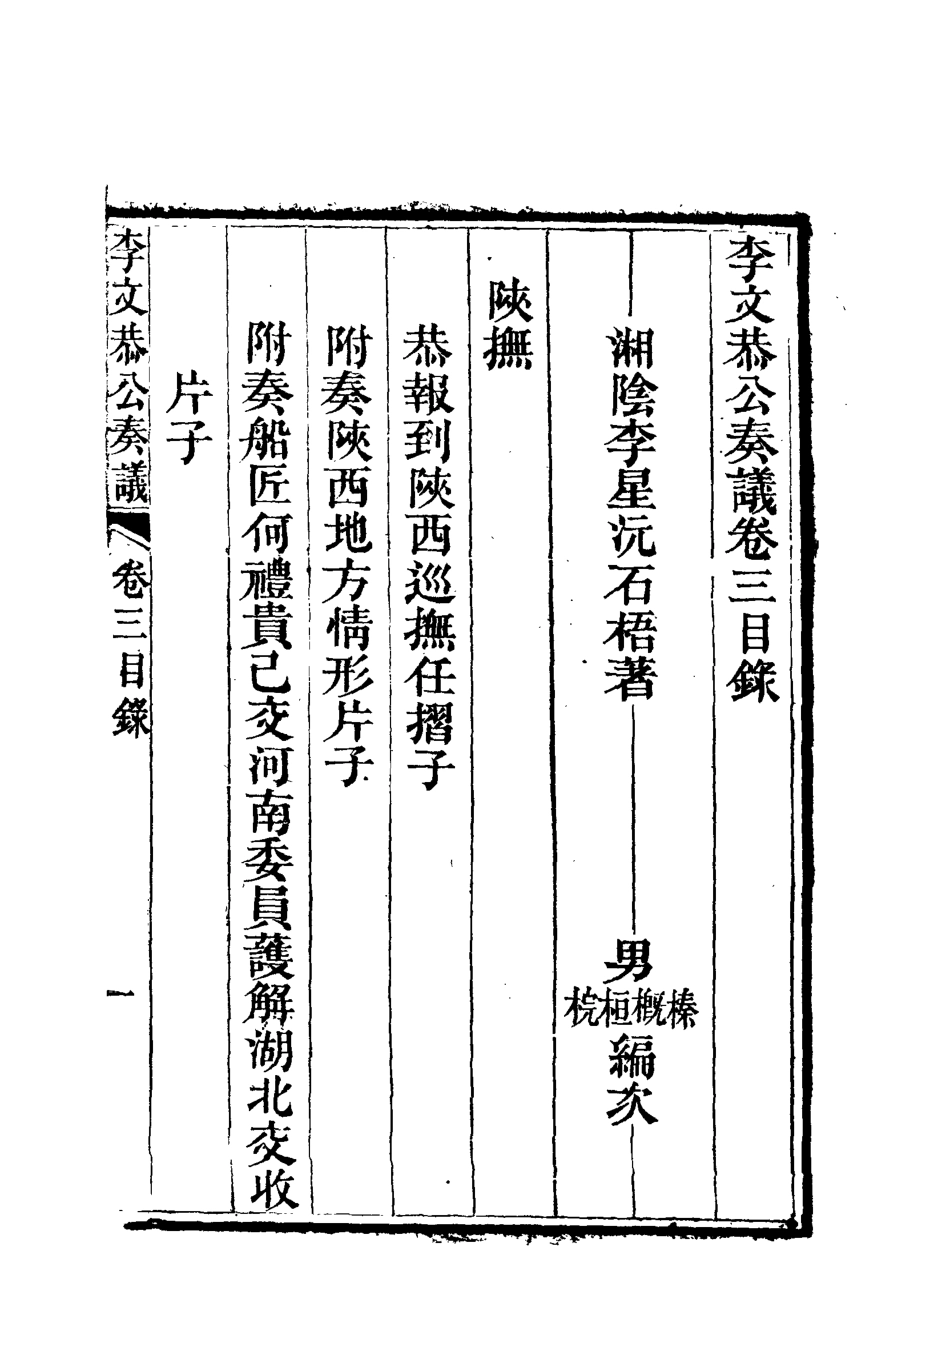 李文恭公奏議卷三目錄
湘陰李星沅石梧著 男榛概桓梡編次
陝撫
恭報到陝西巡撫任摺子
附奏陝西地方情形片子
附奏船匠何禮貴已交河南委員護解湖北交收
片子
李文恭公奏議 卷三目錄 一